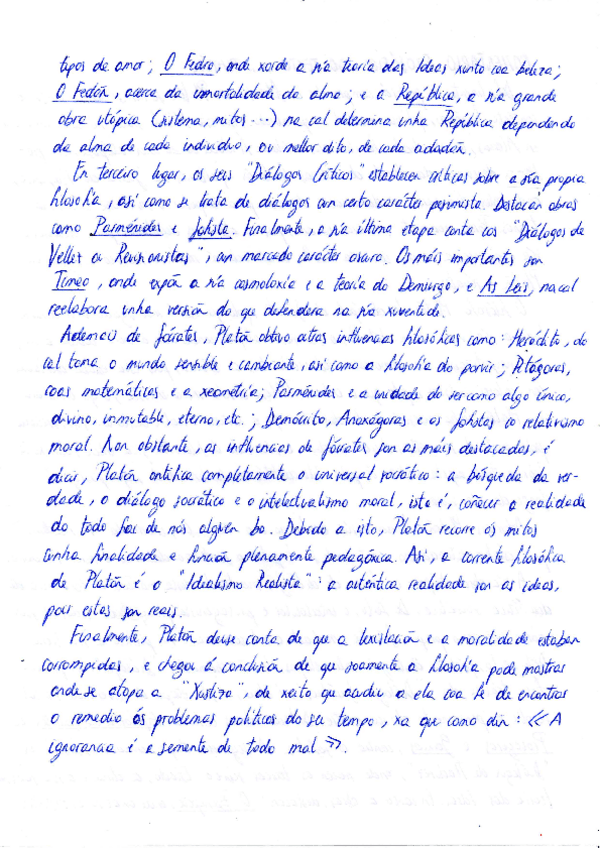 tipos de amor; O Fedro, onde xorde a súa teoría das Ideas xunto coa beleza;
O Fedón, acerca da inmortalidade da alma; e a República, a súa grande
obra utópica (sistema, mitos...) na cal determina unha República dependendo
da alma de cada individuo, ou mellor dito, de cada cidadán.
En terceiro lugar, os seus "Diálogos Críticos" establecen críticas sobre a súa propia
filosofía, así como se trata de diálogos cun certo carácter pesimista. Destacan obras
como Parménides e Sofista. Finalmente, a súa última etapa conta cos "Diálogos de
Vellez ou Revisionistas", cun marcado carácter oscuro. Os máis importantes son
Timeo, onde expón a súa cosmoloxía e a teoría do Demiurgo, e As Leis, na cal
reelabora unha versión do que defendera na súa xuventude.
Ademais de Sócrates, Platón obtivo outras influencias filosóficas como: Heráclito, do
cal toma o mundo sensible e cambiante, así como a filosofía do porvir; Pitágoras,
coas matemáticas e a xeometría; Parménides e a unidade do ser como algo único,
divino, inmutable, eterno, etc.; Demócrito, Anaxágoras e os sofistas co relativismo
moral. Non obstante, as influencias de Sócrates son as máis destacadas, é
dicir, Platón critica completamente o universal socrático: a búsqueda da ver-
dade, o diálogo socrático e o intelectualismo moral, isto é, coñecer a realidade
do todo fai de nós alguén bo. Debido a isto, Platón recorre ós mitos
cunha finalidade e función plenamente pedagóxica. Así, a corrente filosófica
de Platón é o "Idealismo Realista": a auténtica realidade son as ideas,
pois estas son reais.
Finalmente, Platón deuse conta de que a lexislación e a moralidade estaban
corrompidas, e chegou á conclusión de que soamente a filosofía pode mostrar
onde se atopa a "Xustiza", de xeito que acudiu a ela coa fé de encontrar
o remedio ós problemas políticos do seu tempo, xa que como din: «A
ignorancia é a semente de todo mal».